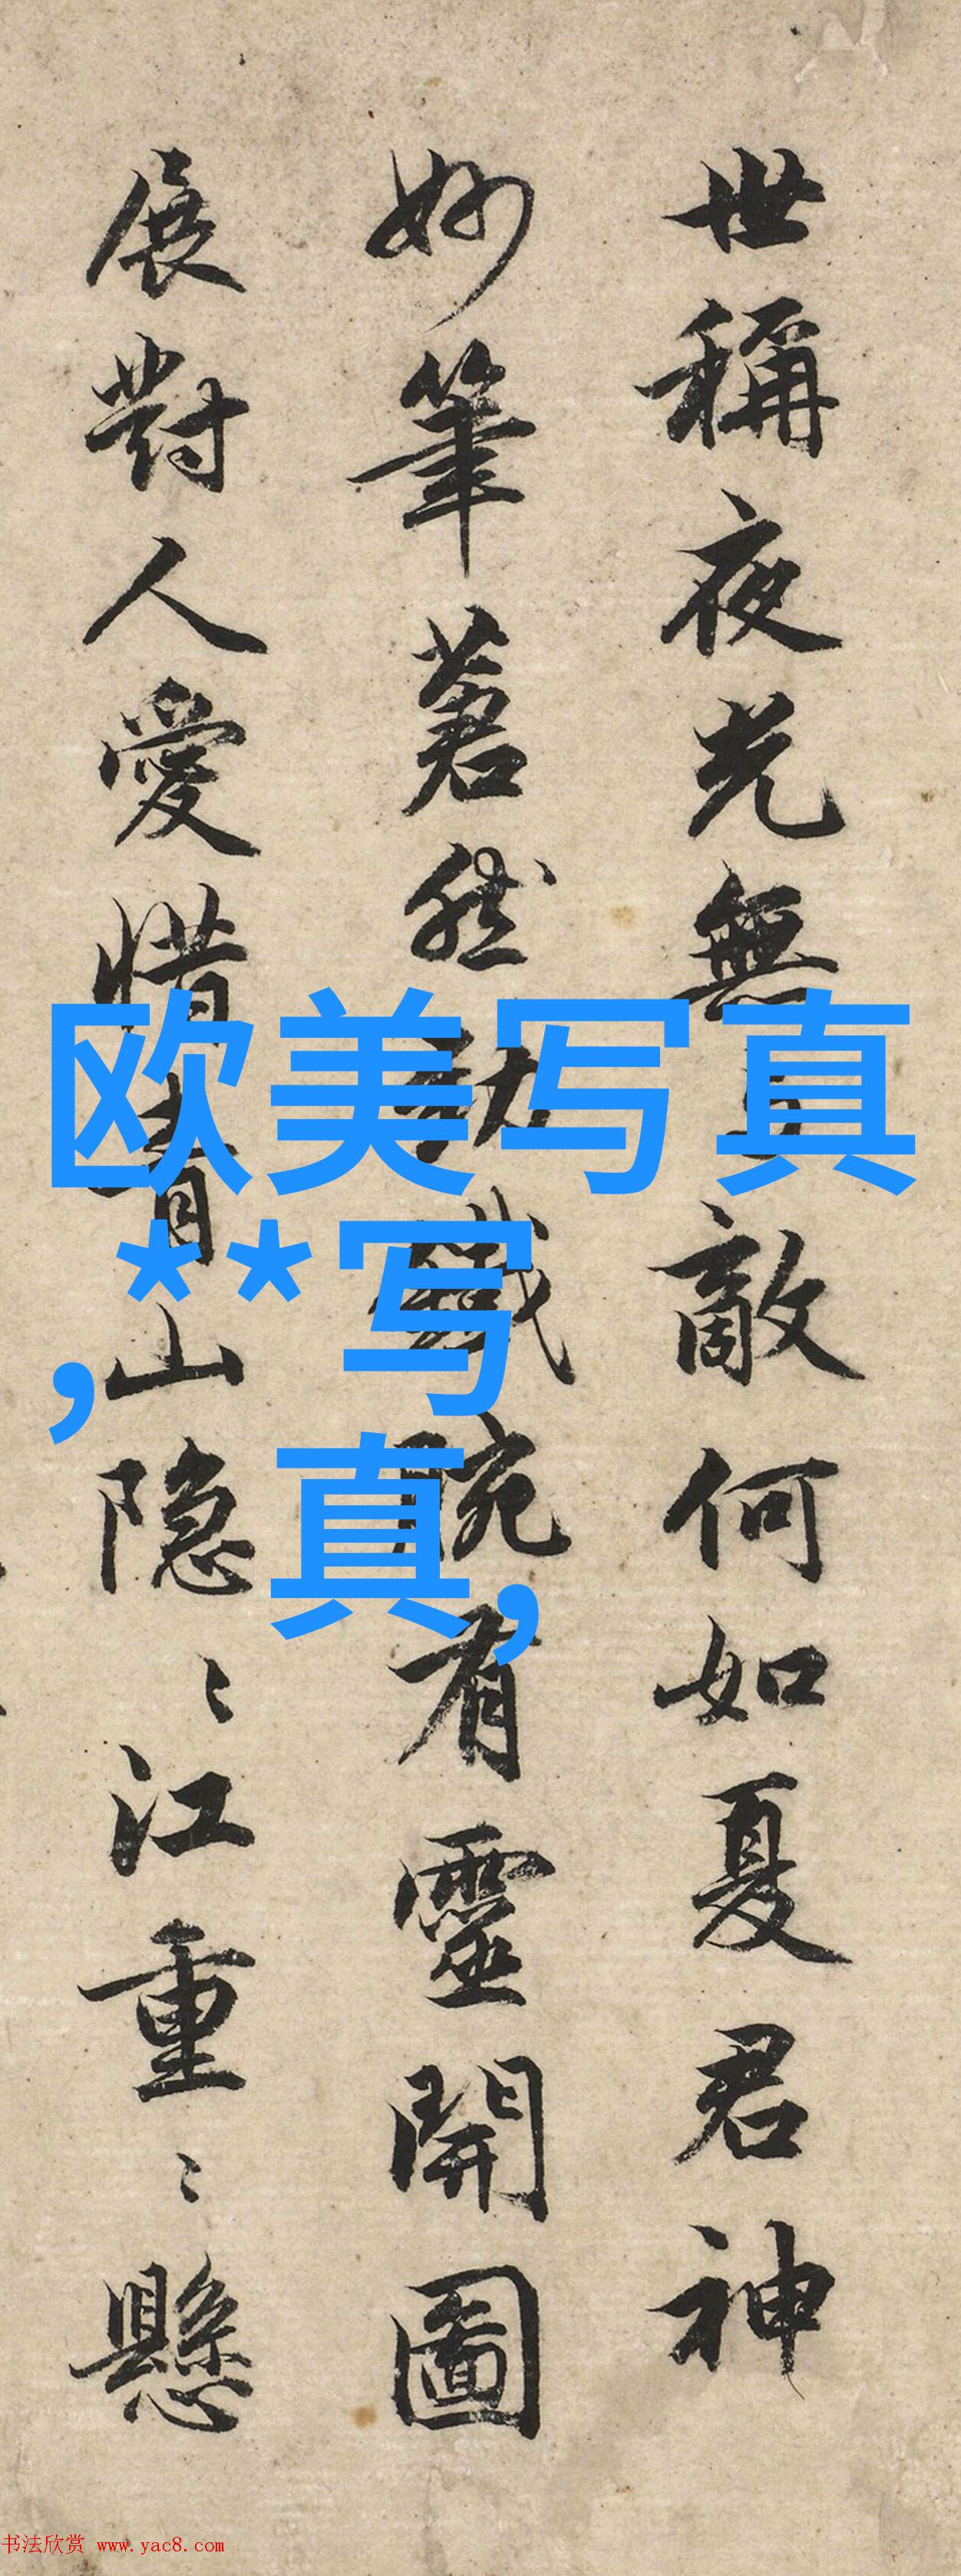 世稱夜光無
敵何如夏君神
妙筆着然
腕有靈開圖
展對人愛惜青山隐〻江重〻懸
欧美写真
,**写
真,
书法欣赏 www.yac8.com